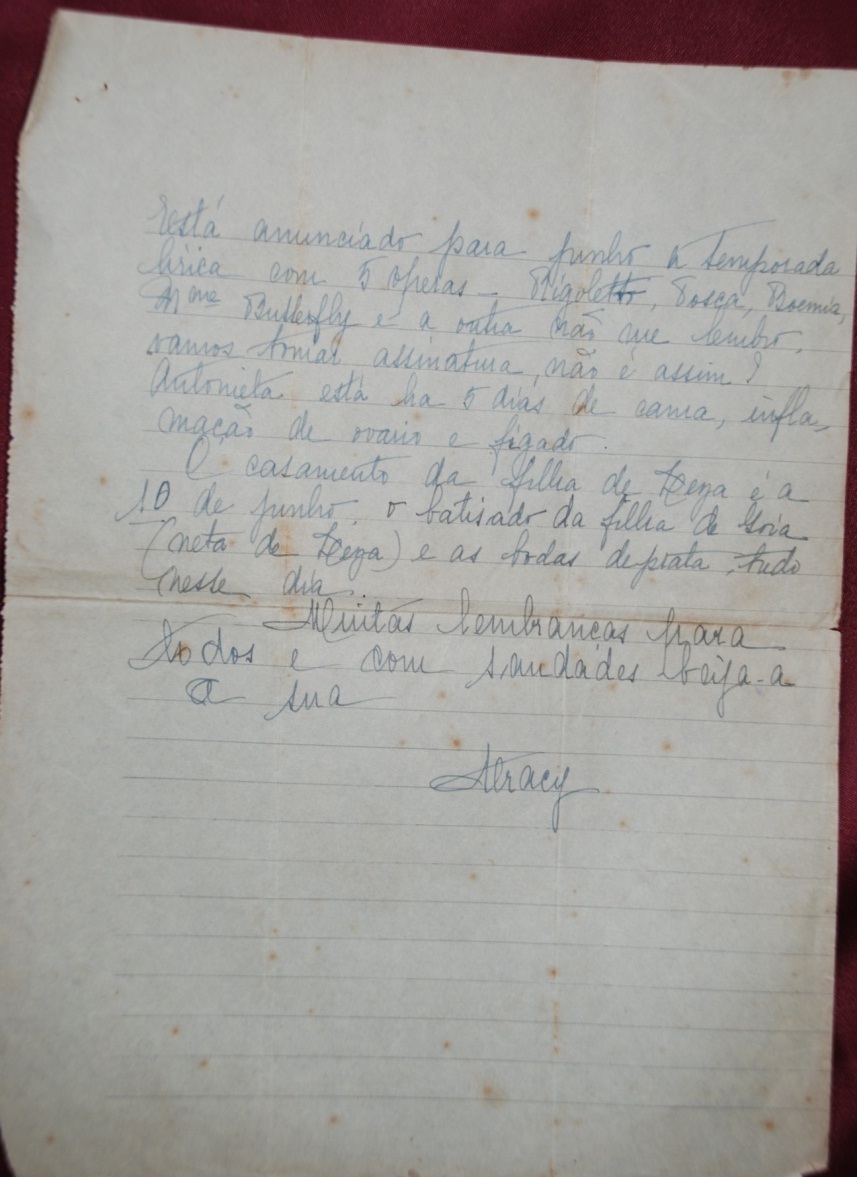 Está anunciado para junho a temporada
lirica com 5 operas - Rigoletto, Tosca, Boemia,
Mme Butterfly e a outra não me lembro.
vamos tomar assinatura, não é assim?
Antonieta está ha 5 dias de cama, infla-
mação de ovario e figado.
O casamento da filha de Zeza é a
10 de junho, o batisado da filha de
(neta de Zeza) e as bodas de prata, tudo
nesse dia.
Muitas lembranças para
todos e com saudades beija-a
a sua